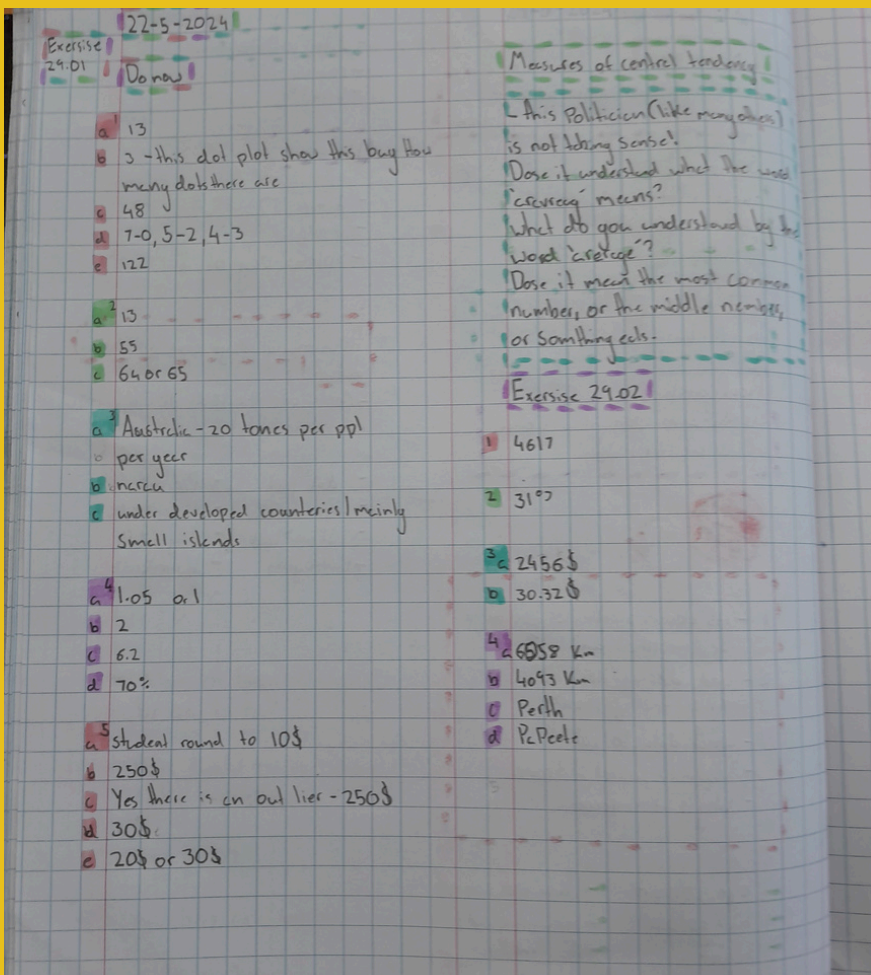 22-5-2024
Exersise
29.01
Do now
a 1 13
b 3 - this dot plot show this buy How
many dots there are
c 48
d 7-0, 5-2, 4-3
e 122
a 2 13
b 55
c 64 or 65
a 3 Australia - 20 tones per ppl
per year
b narau
c under developed counteries/mainly
small islands
a 4 1.05 or 1
b 2
c 6.2
d 70%
a 5 student round to 10$
b 250$
c Yes there is an out lier - 250$
d 30$
e 20$ or 30$
Measures of central tendency
this Politician (like many others)
is not sense!
Dose it understand what the word
means?
What do you understand by the
word
Dose it mean the most common
number, or the middle number,
or somthing eels.
Exersise 29.02
1 4617
2 31
3 a 2456$
b 30.32$
4 a Km
b 4093 Km
c Perth
d PaPeete